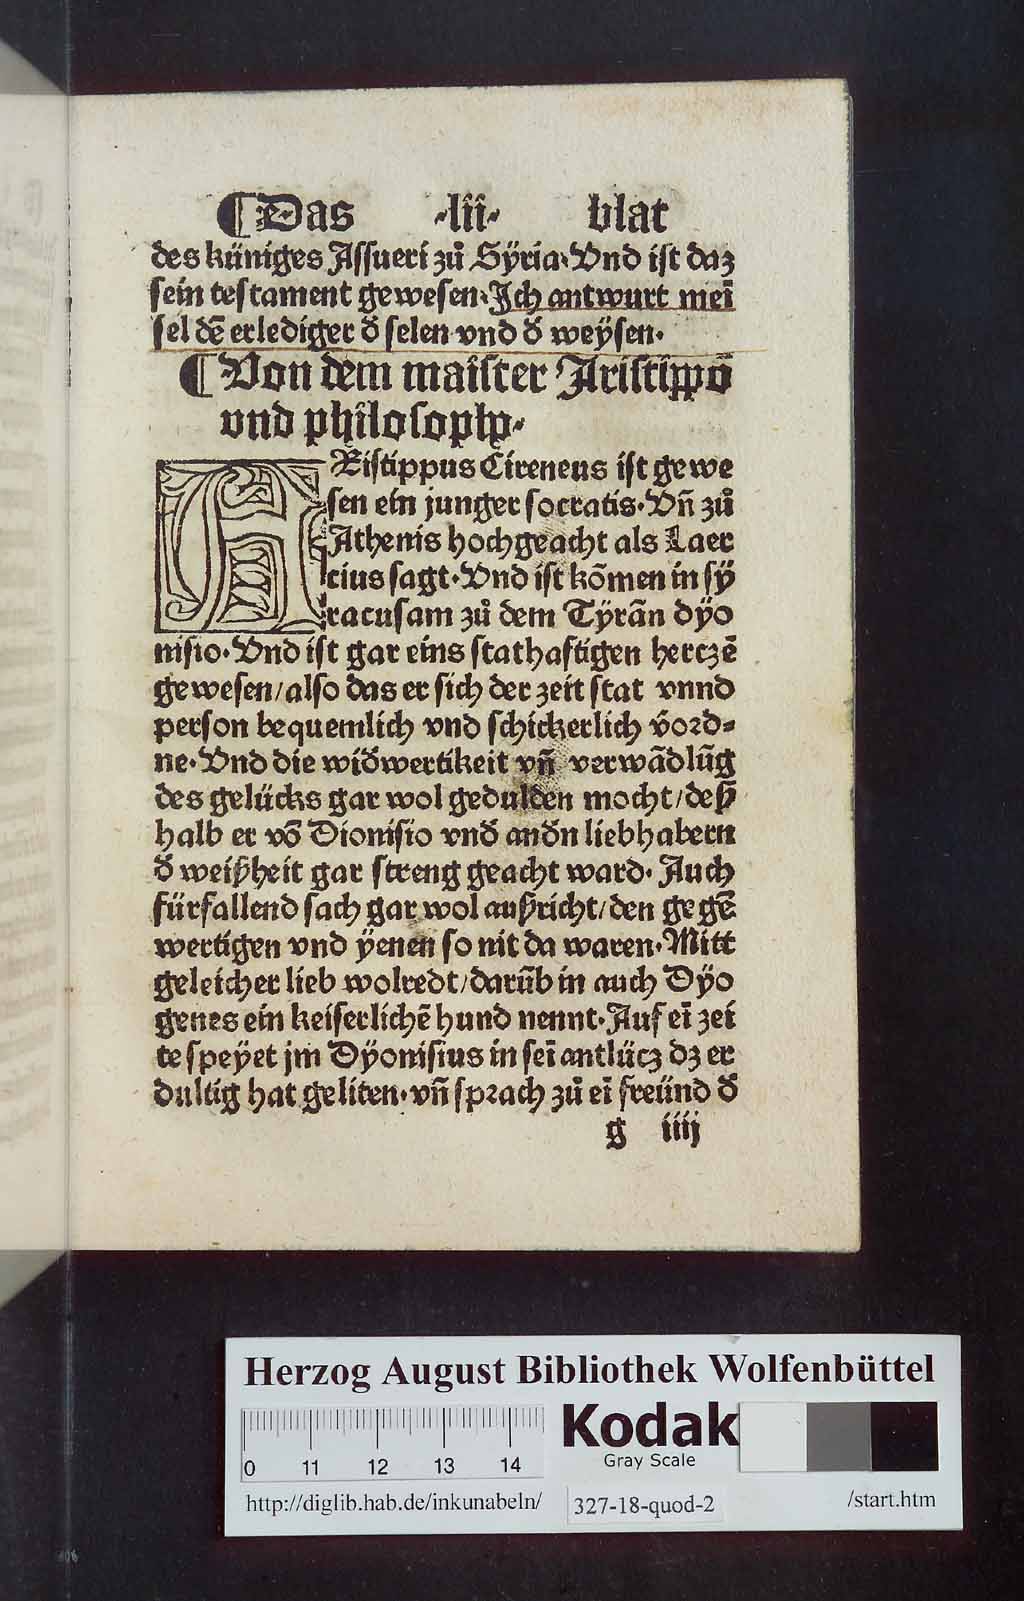 ¶Das ·lii· blat
des küniges Assueri zů Sÿria·Vnd ist daz
sein testament gewesen·Ich antwurt meī
sel dē erlediger đ selen vnd đ weÿsen·
¶Von dem maister Aristippō
vnd philosophy·
ARistippus Cireneus ist gewe
sen ein junger socratis·Vn̄ zů
Athenis hochgeacht als Laer
cius sagt·Vnd ist kōmen in sÿ
racusam zů dem Tÿrān dÿo
nisio·Vnd ist gar eins stathaftigen herczē
gewesen/also das er sich der zeit stat vnnd
person bequemlich vnd schickerlich v̄ord⸗
ne·Vnd die widwertikeit vn̄ verwādlūg
des gelücks gar wol gedulden mocht/deß
halb er vō Dionisio vnđ anđn liebhabern
đ weißheit gar streng geacht ward·Auch
fürfallend sach gar wol außricht/den gegē
wertigen vnd ÿenen so nit da waren·Mitt
geleicher lieb wolredt/darūb in auch Dÿo
genes ein keiserlichē hund nennt·Auf eī zei
te speÿet jm Dÿonisius in seī antlücz dz er
dultig hat geliten·vn̄ sprach zů eī freünd đ
g iiij
Herzog August Bibliothek Wolfenbüttel
0 11 12 13 14
Kodak
Gray Scale
http://diglib.hab.de/inkunabeln/ 327-18-quod-2 /start.htm